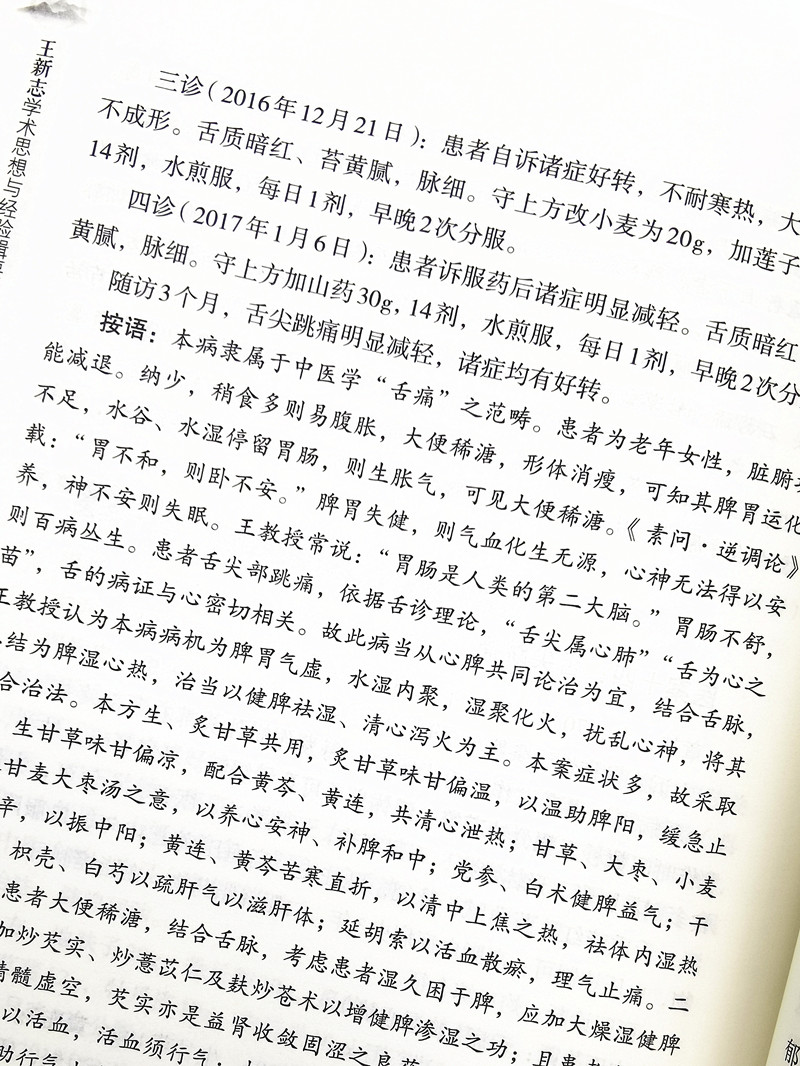 王新志学术思想与经验辑
三诊（2016年12月21日）：患者自诉诸症好转，不耐寒热，大
不成形。舌质暗红、苔黄腻，脉细。守上方改小麦为20g，加莲子
14剂，水煎服，每日1剂，早晚2次分服。
四诊（2017年1月6日）：患者诉服药后诸症明显减轻。舌质暗红
黄腻，脉细。守上方加山药30g，14剂，水煎服，每日1剂，早晚2次分
随访3个月，舌尖跳痛明显减轻，诸症均有好转。
按语：本病隶属于中医学“舌痛”之范畴。患者为老年女性，脏腑
能减退。纳少，稍食多则易腹胀，大便稀溏，形体消瘦，可知其脾胃运化
不足，水谷、水湿停留胃肠，则生胀气，可见大便稀溏。《素问·逆调论》
载：“胃不和，则卧不安。”脾胃失健，则气血化生无源，心神无法得以安
养，神不安则失眠。王教授常说：“胃肠是人类的第二大脑。”胃肠不舒，
则百病丛生。患者舌尖部跳痛，依据舌诊理论，“舌尖属心肺”“舌为心之
苗”，舌的病证与心密切相关。故此病当从心脾共同论治为宜，结合舌脉，
王教授认为本病病机为脾胃气虚，水湿内聚，湿聚化火，扰乱心神，将其
结为脾湿心热，治当以健脾祛湿、清心泻火为主。本案症状多，故采取
合治法。本方生、炙甘草共用，炙甘草味甘偏温，以温助脾阳，缓急止
生甘草味甘偏凉，配合黄芩、黄连，共清心泄热；甘草、大枣、小麦
甘麦大枣汤之意，以养心安神、补脾和中；党参、白术健脾益气；干
辛，以振中阳；黄连、黄芩苦寒直折，以清中上焦之热，祛体内湿热
枳壳、白芍以疏肝气以滋肝体；延胡索以活血散瘀，理气止痛。二
患者大便稀溏，结合舌脉，考虑患者湿久困于脾，应加大燥湿健脾
加炒芡实、炒薏苡仁及麸炒苍术以增健脾渗湿之功；且患
精髓虚空，芡实亦是益肾收敛固涩之良药
以活血，活血须行气；
助行气
郁